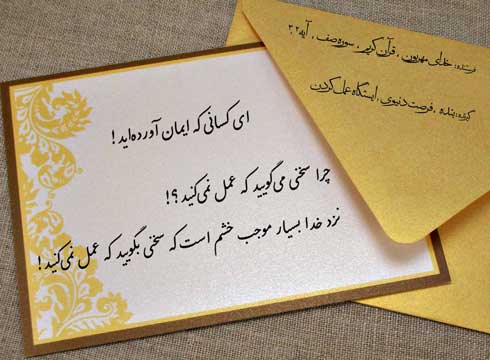 ای کسانی که ایمان آورده‌اید !
چرا سخنی می‌گویید که عمل نمی‌کنید ؟!
نزد خدا بسیار موجب خشم است که سخنی بگویید که عمل نمی‌کنید !
فرستنده: خدای مهربون ، قرآن کریم ، سوره صف ، آیه ۲ ۳
گیرنده: بنده ، فرصت دنیوی ، ایستگاه عمل کردن